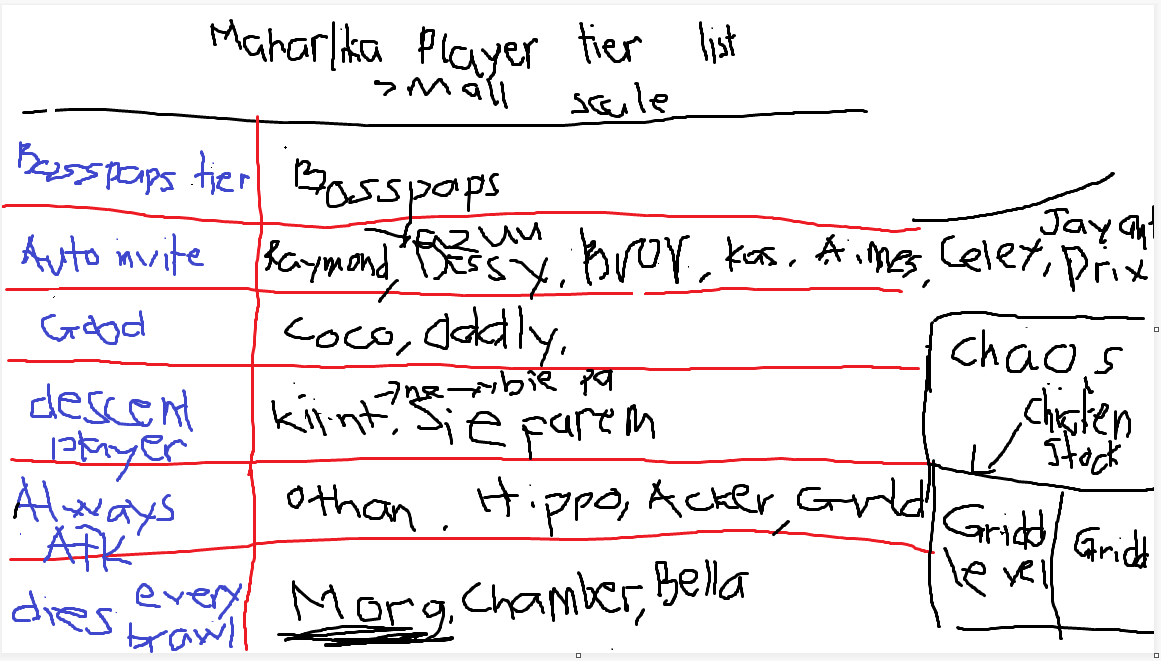 Maharlika Player tier list
small scale
Bosspaps tier
Bosspaps
Auto invite
Raymond, Dessy, Bvor, kas. Aimes, Celey, Drix
Jayant
Good
Coco, Oddly,
descent player
kiint. Sie farem
Always Afk
Othan. Hippo, Acker, Guild
dies every brawl
Morg, Chamber, Bella
Chaos
Chicken stock
Gridd level
Gridd